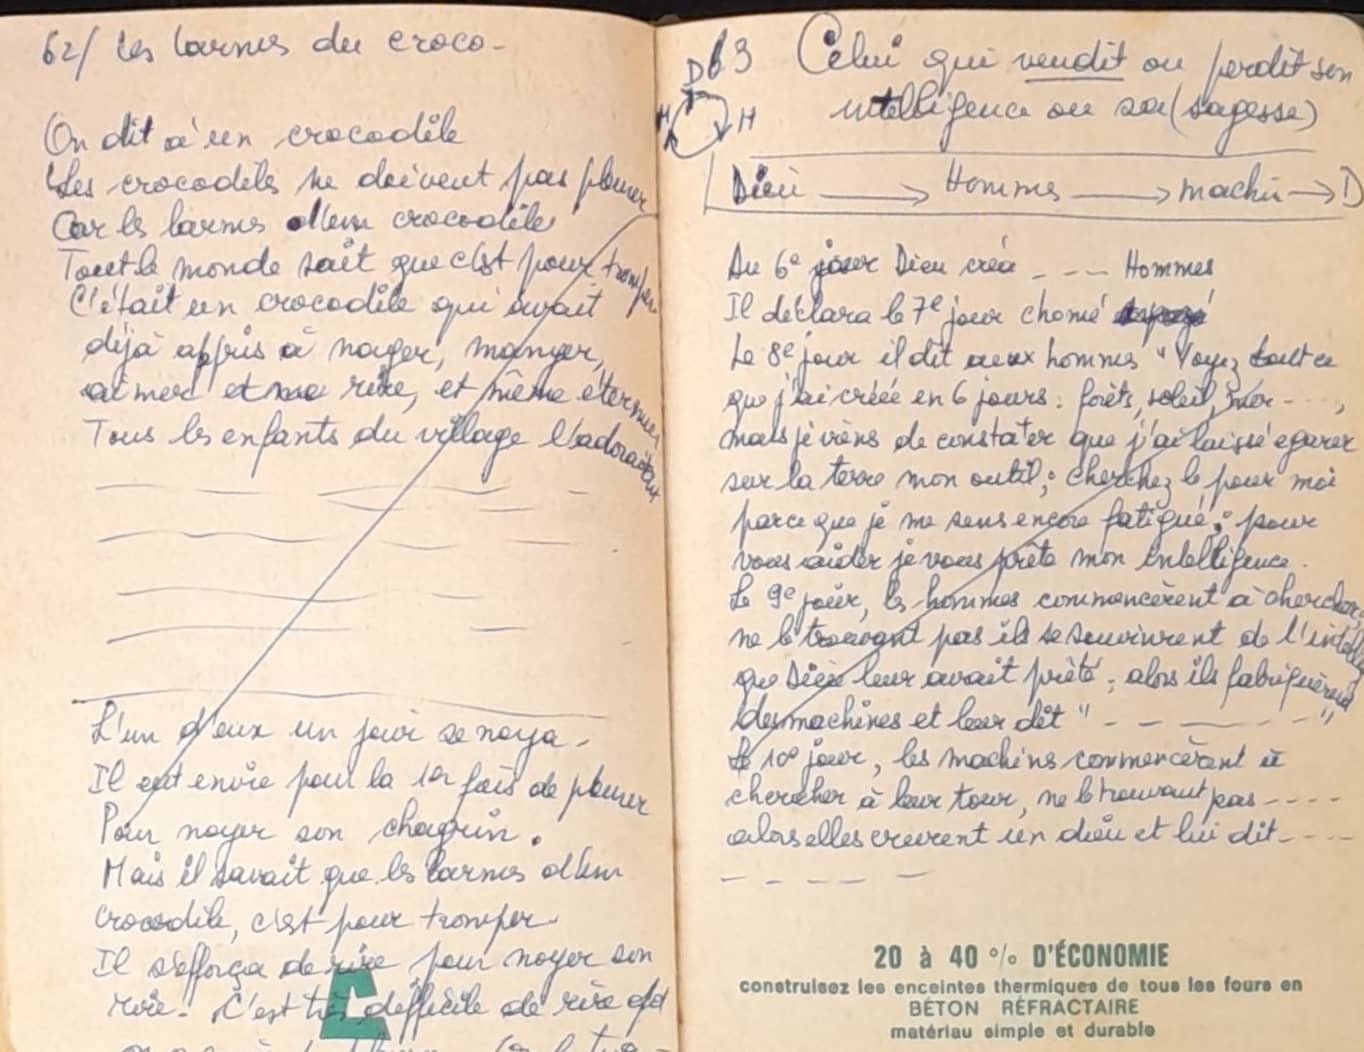 62/ Les larmes du croco-
On dit à un crocodile
"Les crocodiles ne doivent pas pleurer
Car les larmes d'un crocodile
Tout le monde sait que c'est pour tromper
C'était un crocodile qui avait
déjà appris à nager, manger,
aimer et rire, et même éternuer
Tous les enfants du village l'adoraient
L'un d'eux un jour se noya.
Il eut envie pour la 1re fois de pleurer
Pour noyer son chagrin.
Mais il savait que les larmes d'un
crocodile, c'est pour tromper.
Il s'efforça de rire pour noyer son
rire. C'est très difficile de rire qd
63 Celui qui vendit ou perdit son
intelligence ou sa (sagesse)
D
H H
Dieu → Hommes → machin → D
Au 6e jour Dieu créa _ _ _ Hommes
Il déclara le 7e jour chomé
Le 8e jour il dit aux hommes "Voyez tout ce
que j'ai créée en 6 jours : forêts, soleil, mer - - - -,
mais je viens de constater que j'ai laissé egarer
sur la terre mon outil ; cherchez le pour moi
parce que je me sens encore fatigué ; pour
vous aider je vous prète mon intelligence.
Le 9e jour, les hommes commencèrent à chercher,
ne le trouvant pas ils se souvinrent de l'intellig
que Dieu leur avait prèté ; alors ils fabriquèrent
des machines et leur dit " - - - - - "
Le 10e jour, les machins commencèrent à
chercher à leur tour, ne le trouvant pas - - - -
alors elles creurent un dieu et lui dit - - - -
- - - - -
20 à 40 % D'ÉCONOMIE
construisez les enceintes thermiques de tous les fours en
BÉTON RÉFRACTAIRE
matériau simple et durable